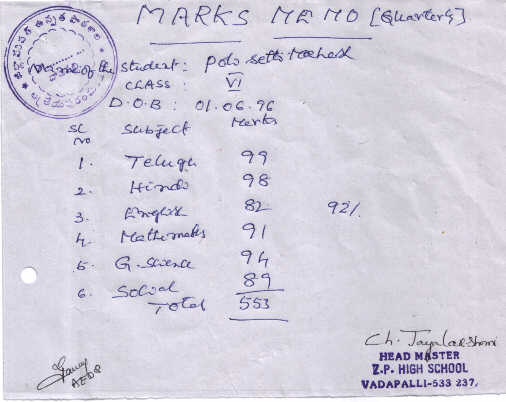 MARKS MEMO [Quarterly]
Name of the Student : Polo setti Mahesh
CLASS : VI
D.O.B : 01.06.96
SL No Subject Marks
1. Telugu 99
2. Hindi 98
3. English 82 92%
4. Mathematics 91
5. G. Science 94
6. Social 89
Total 553
Ch. Jayalakshmi
HEAD MASTER
Z.P. HIGH SCHOOL
VADAPALLI-533 237,
AEDP